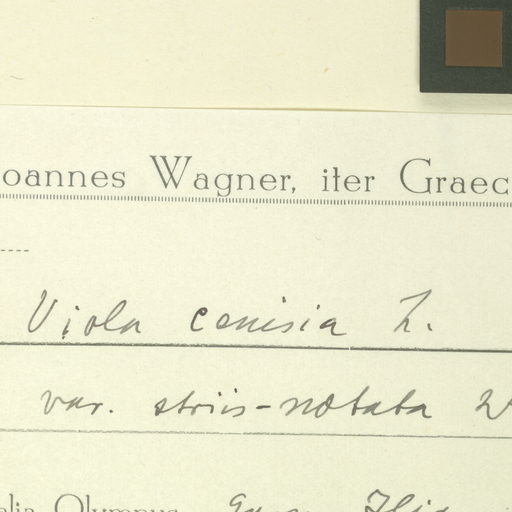 oannes Wagner, iter Graec
Viola cenisia L.
var. striis-notata W
alia Olympus